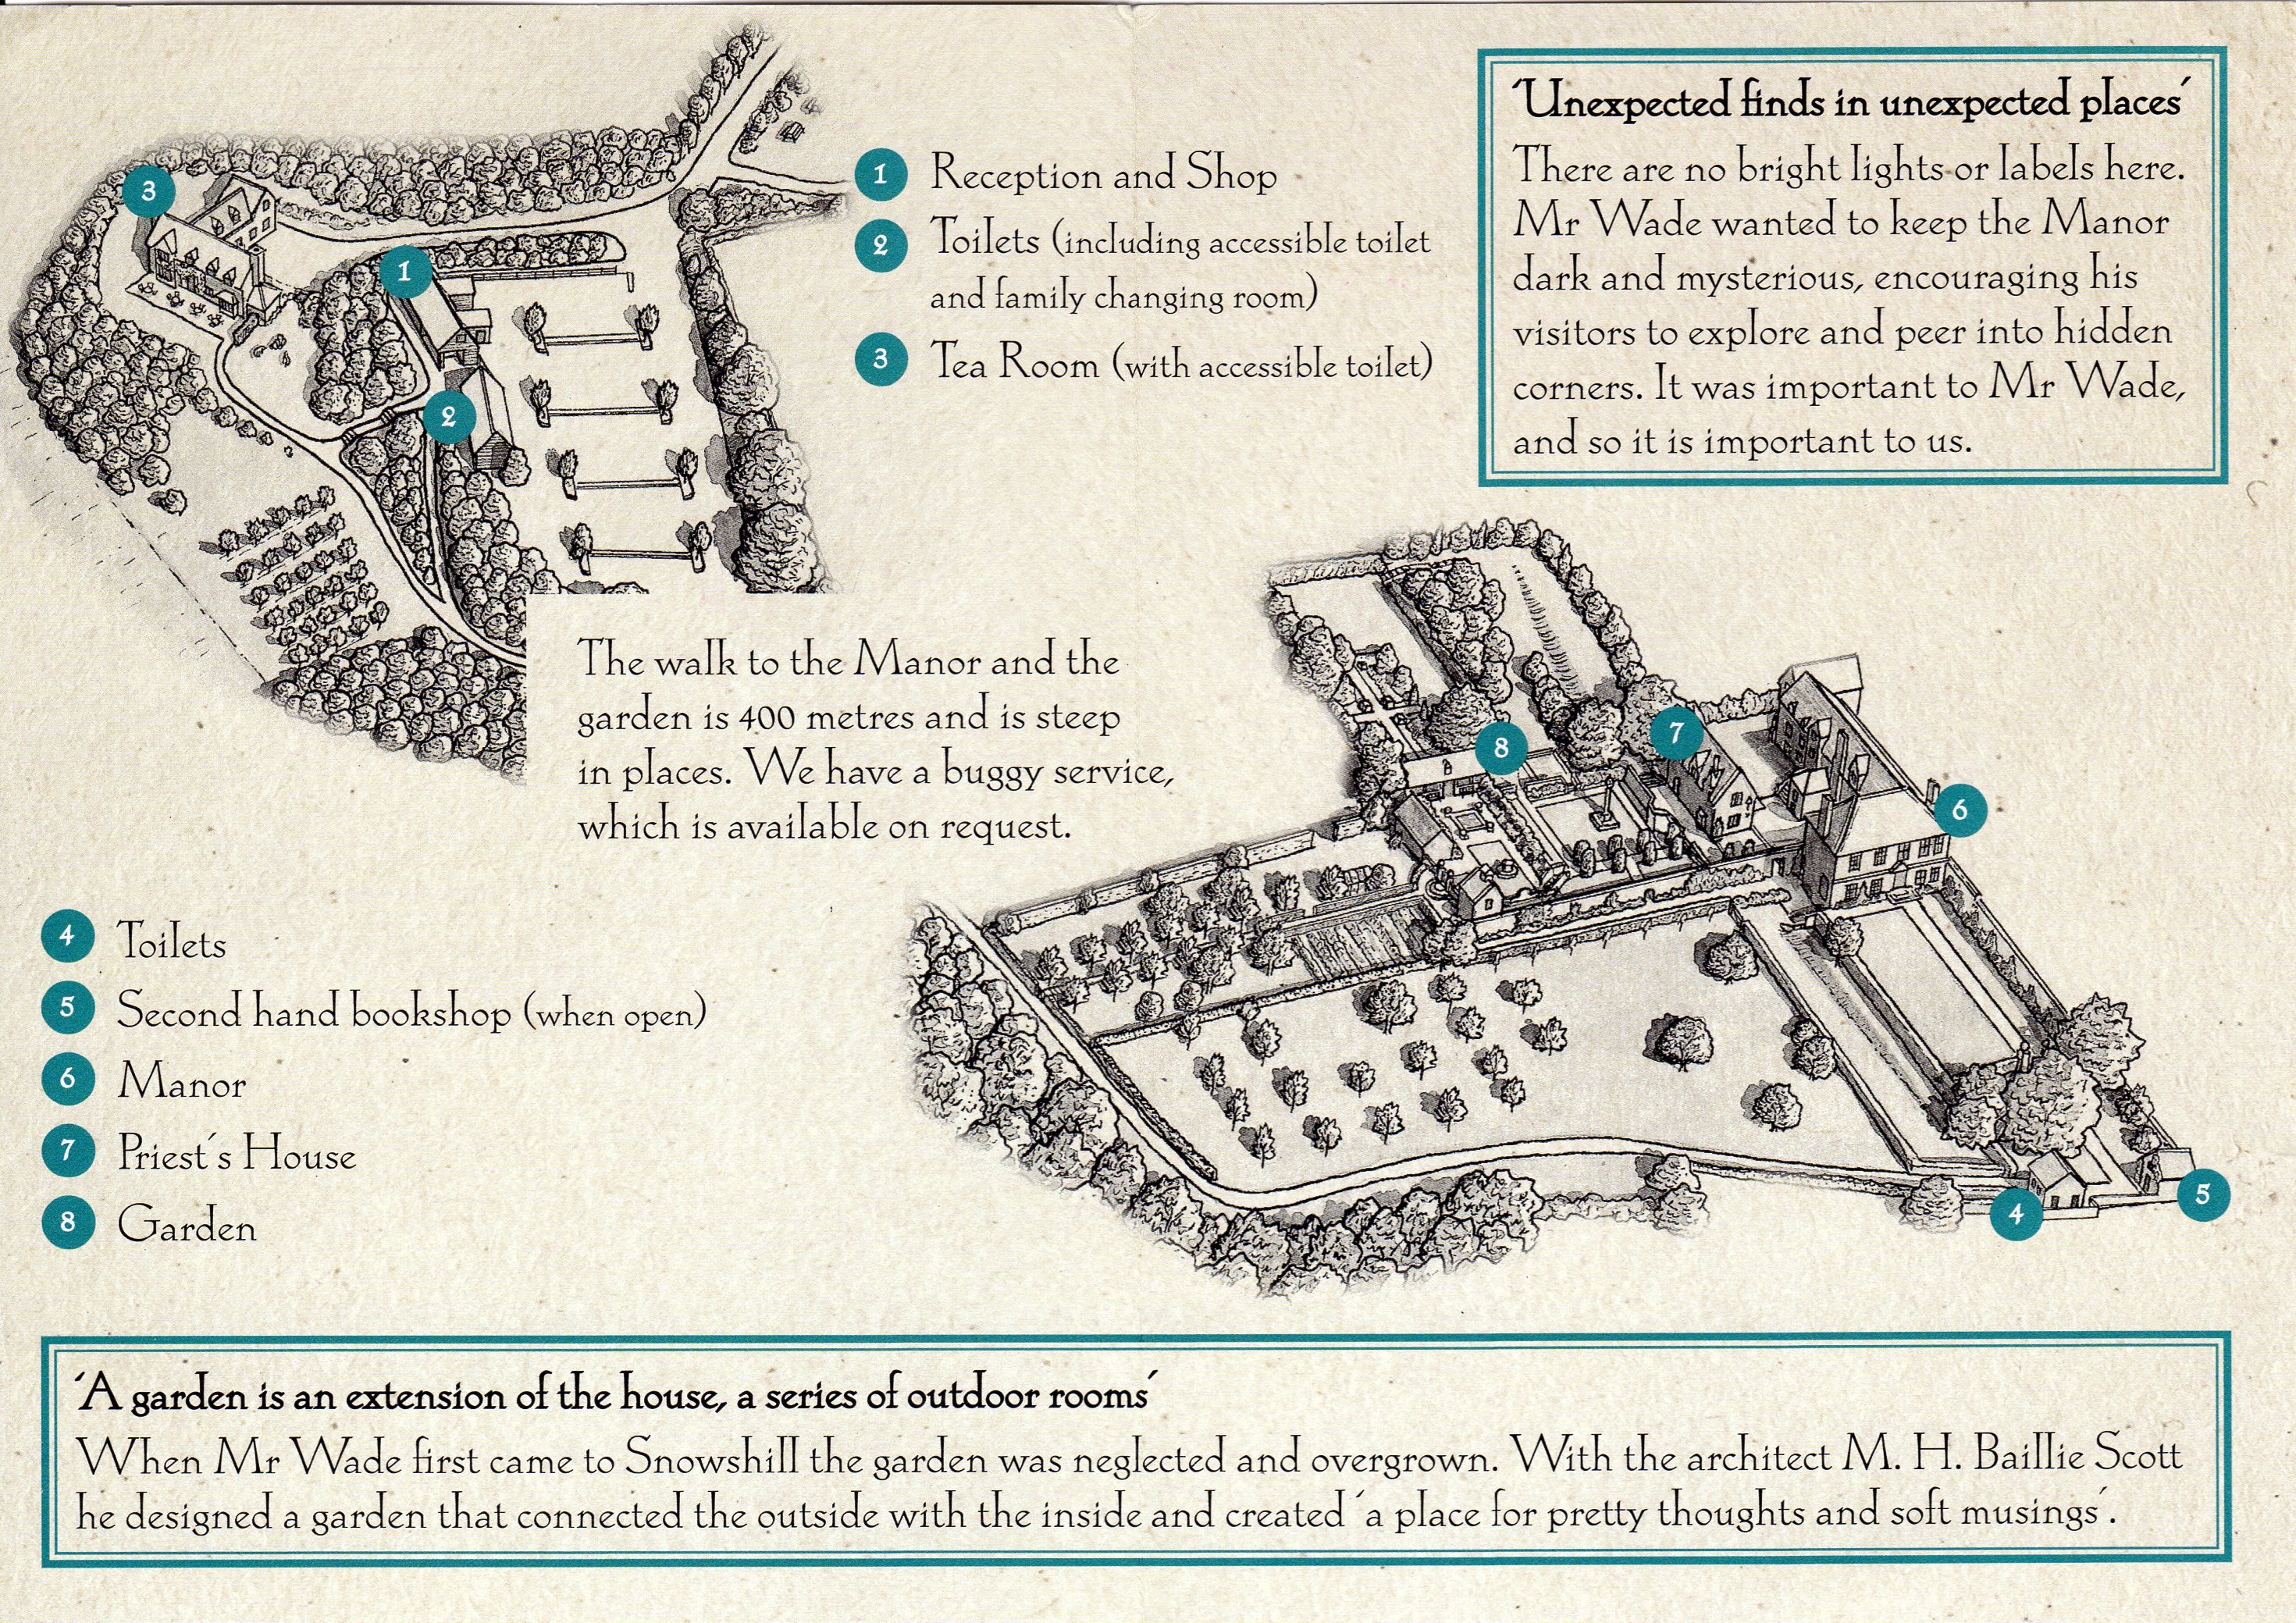 1 Reception and Shop
2 Toilets (including accessible toilet
and family changing room)
3 Tea Room (with accessible toilet)
'Unexpected finds in unexpected places'
There are no bright lights or labels here.
Mr Wade wanted to keep the Manor
dark and mysterious, encouraging his
visitors to explore and peer into hidden
corners. It was important to Mr Wade,
and so it is important to us.
3
1
2
The walk to the Manor and the
garden is 400 metres and is steep
in places. We have a buggy service,
which is available on request.
8
7
6
4
5
4 Toilets
5 Second hand bookshop (when open)
6 Manor
7 Priest's House
8 Garden
'A garden is an extension of the house, a series of outdoor rooms'
When Mr Wade first came to Snowshill the garden was neglected and overgrown. With the architect M. H. Baillie Scott
he designed a garden that connected the outside with the inside and created 'a place for pretty thoughts and soft musings'.